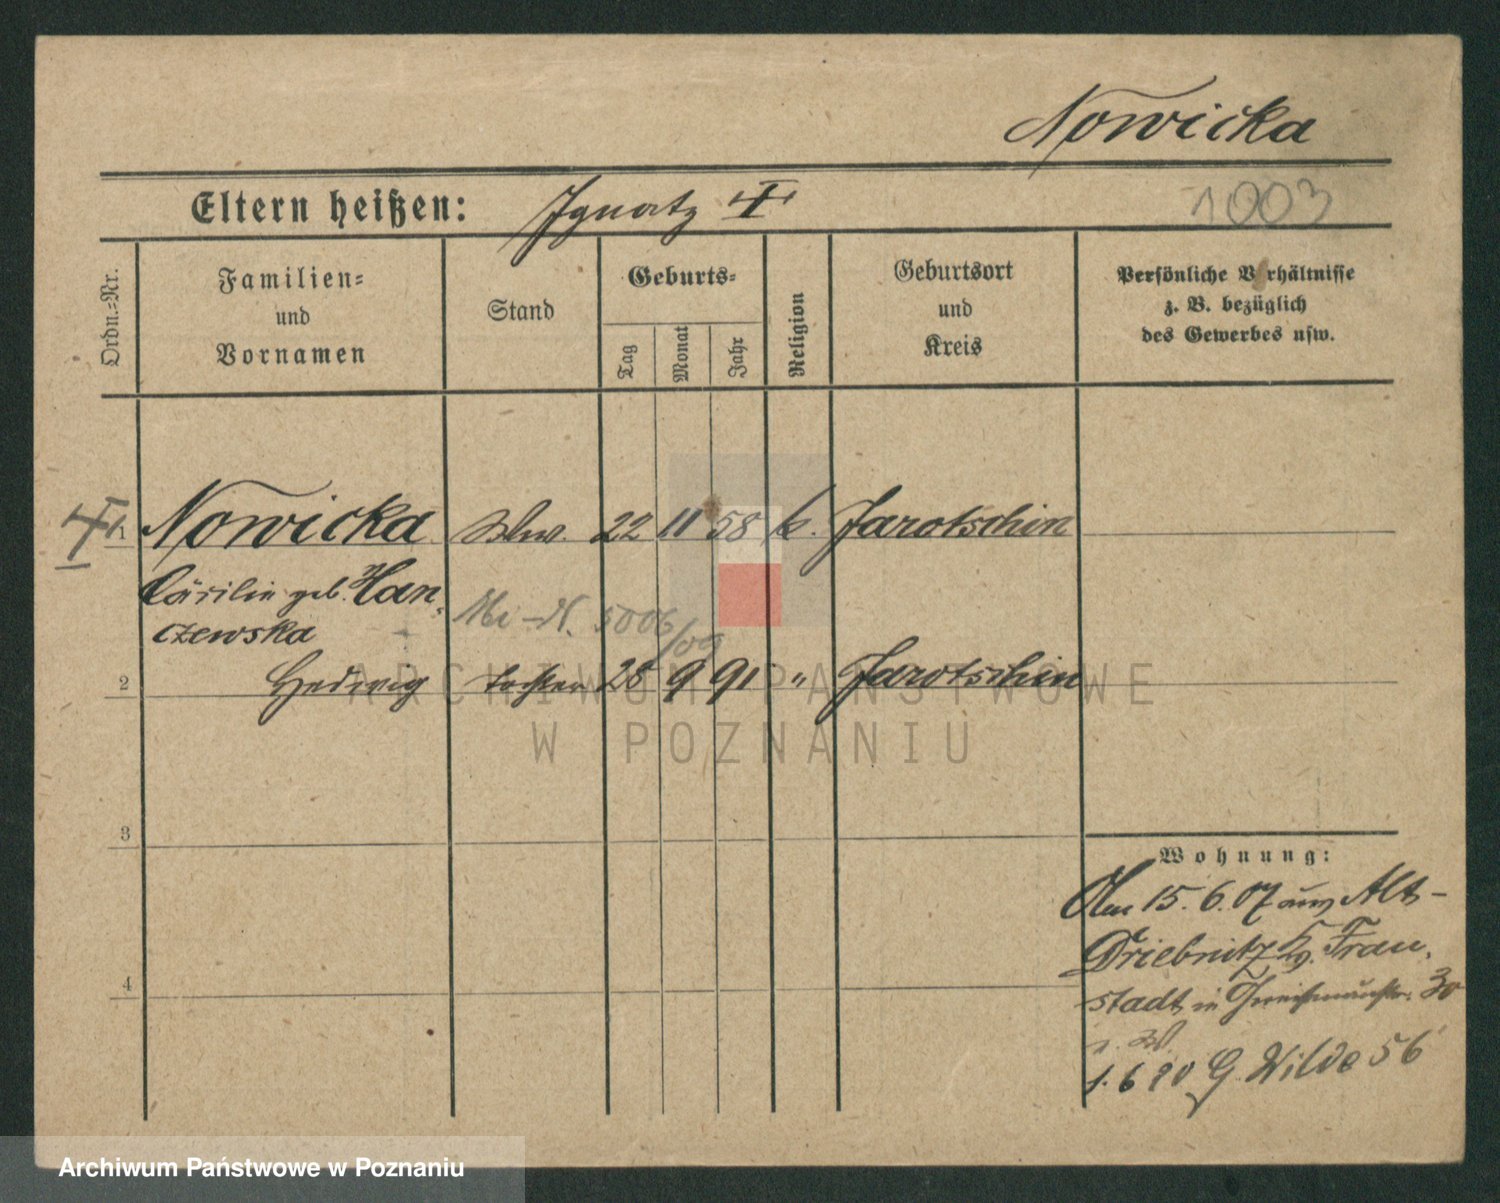 Nowicka
Eltern heißen: Ignatz
1003
Ordn.-Nr.
Familien-
und
Vornamen
Stand
Geburts-
Tag
Monat
Jahr
Religion
Geburtsort
und
Kreis
Persönliche Verhältnisse
z. B. bezüglich
des Gewerbes usw.
1 Nowicka Wwe. 22 11 58 k. Jarotschin
Cäcilie geb. Han-
czewska
5006/09
2 Hedwig Tochter 28 9 91 " Jarotschin
3
4
Wohnung:
Am 15.6.07 aus Alt-
Driebnitz Kr. Frau-
stadt in 30
G. Wilda 56
ARCHIWUM PAŃSTWOWE
W POZNANIU
Archiwum Państwowe w Poznaniu